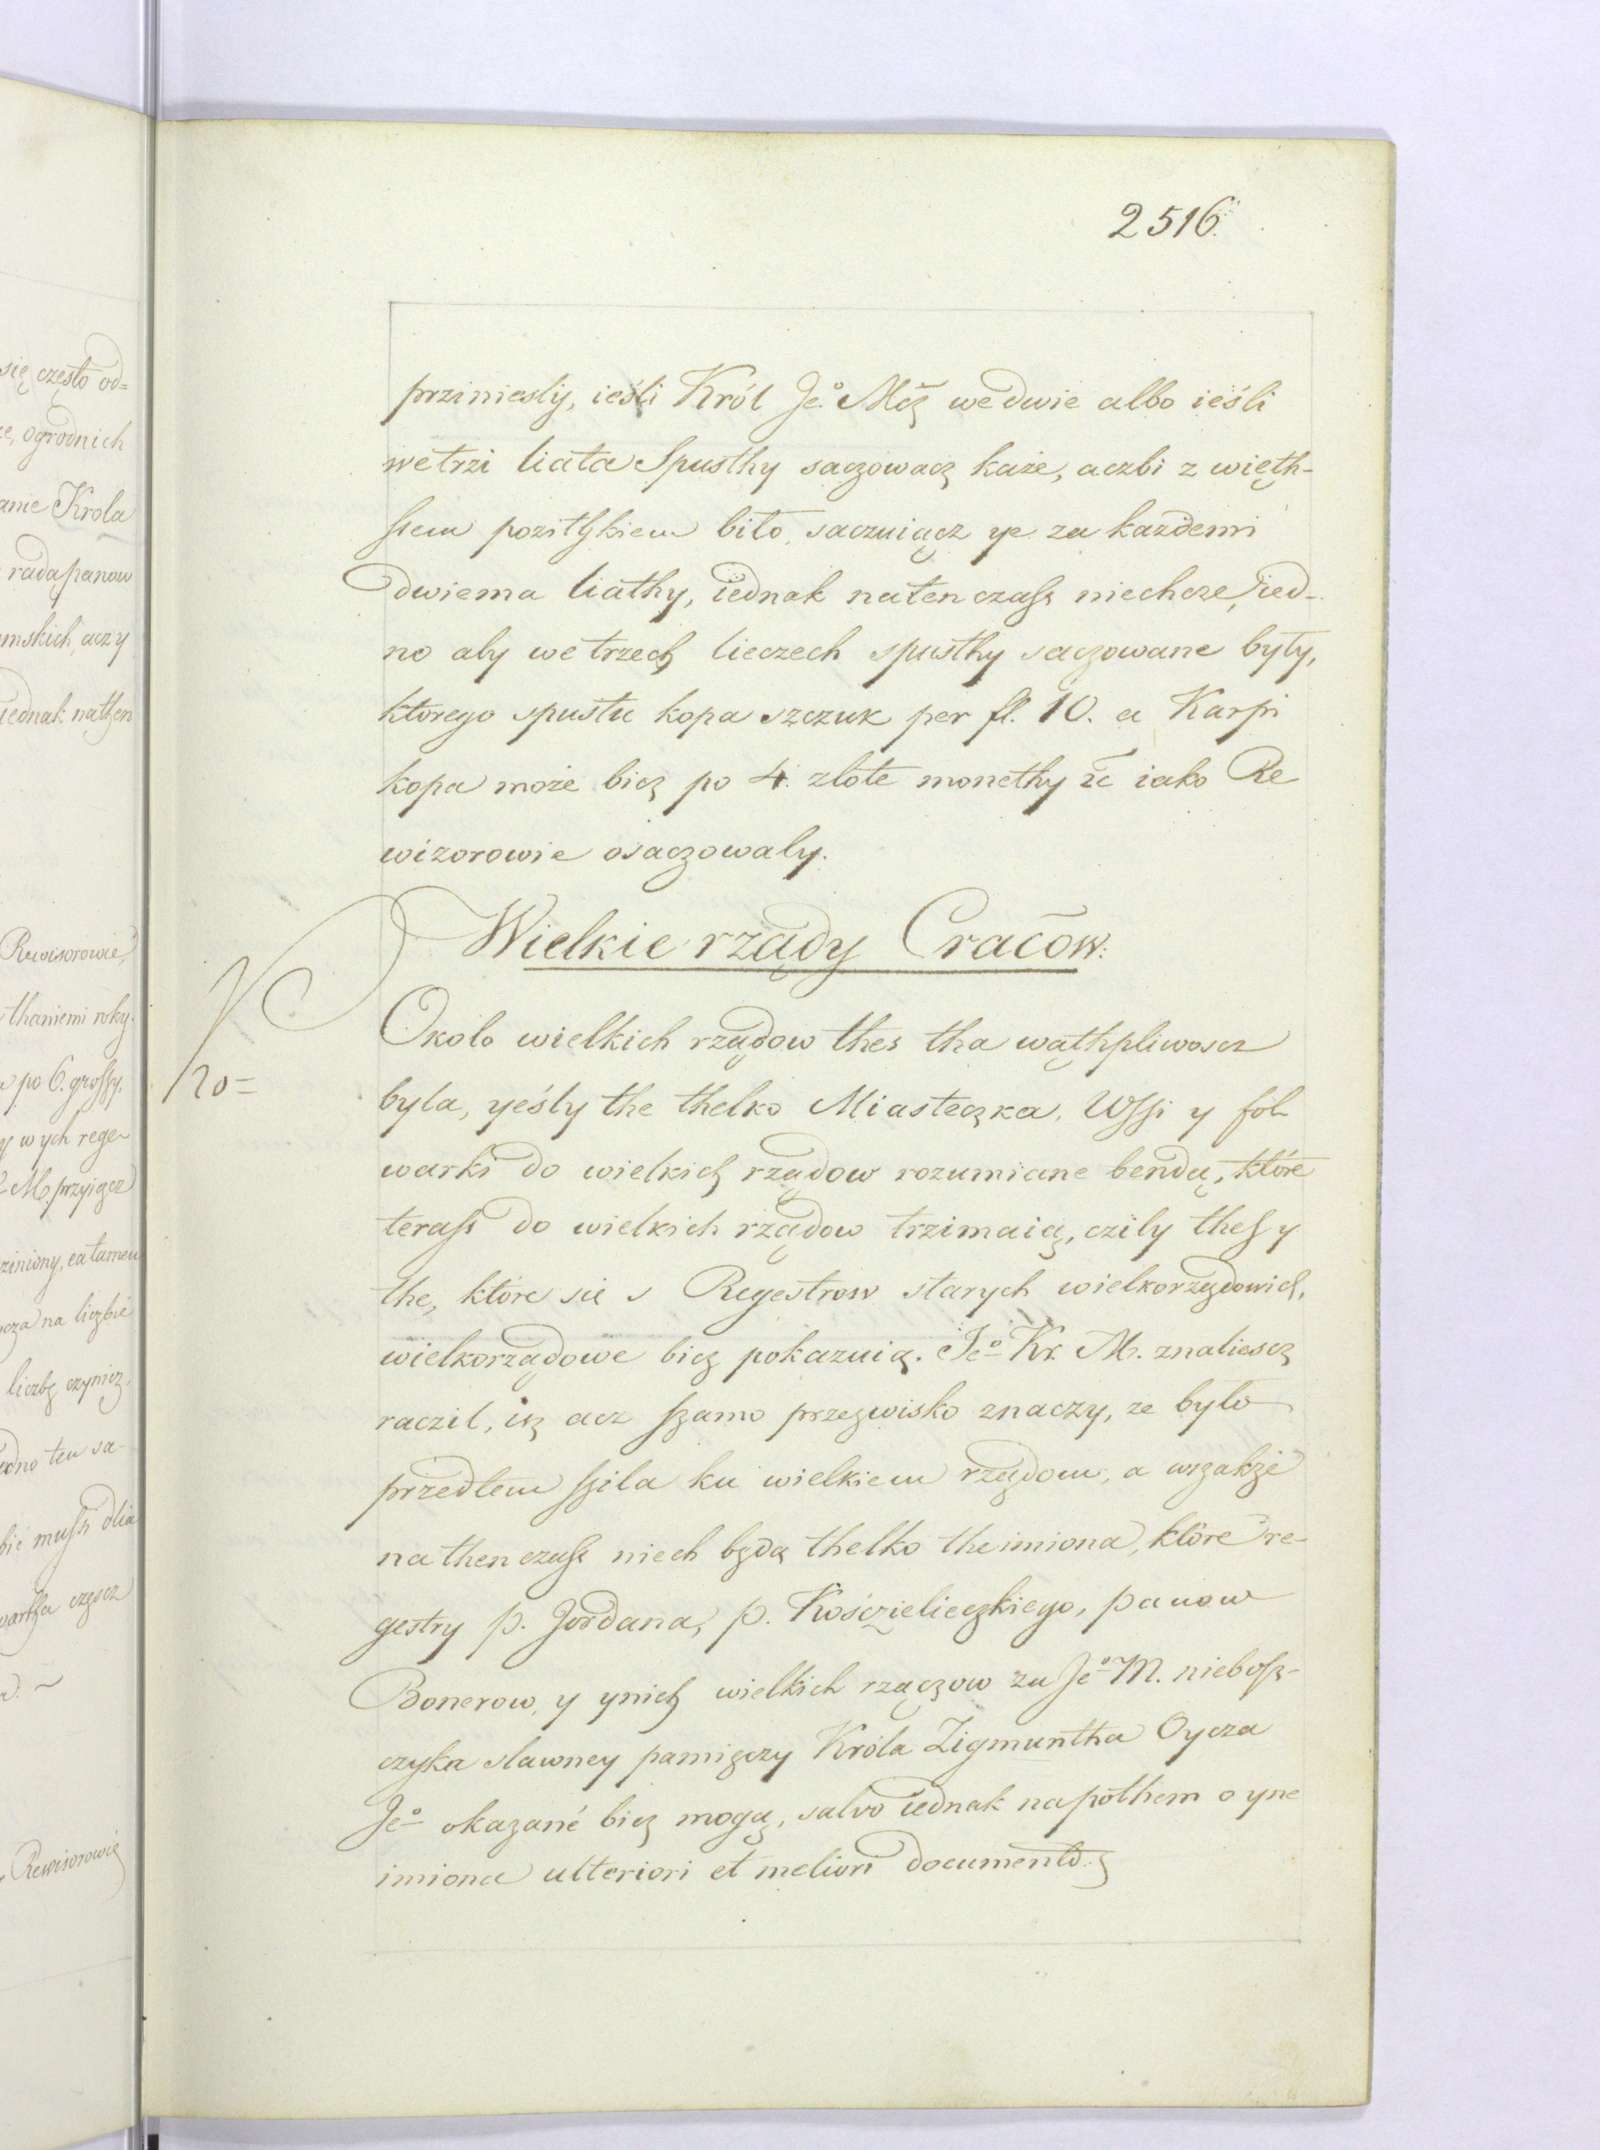 2516.
się często od=
ogrodnich
Krola
rada panow
iednak nathen
Rewisorowie
thaniemi roky.
po 6. grossy,
y w ych rege-
M. przyigcz
na liczbie
liczbę czynicz.
Rewisorowię
prziniesly, ieśli Król Je.º Mcz we dwie albo ieśli
we trzi liata Spusthy saczowacz każe, aczbi z więth-
ssem pozithkiem biło, saczuiącz ye za każdemi
dwiema liathy, iednak naten czass niechcze, ied-
no aby we trzech lieczech spusthy saczowane były,
ktorego spustu kopa szczuk per fl. 10. a Karpi
kopa może bicz po 4. złote monethy ěc iako Re
wizorowie osaczowaly.
Wielkie rządy Cracōw:
Około wielkich rządow thes tha wąthpliwoscz
no=
byla, yesly the thelko Miasteczka, Wssi y fol
warki do wielkich rządow rozumiane bendą, które
terass do wielkich rządow trzimaią, czily thesz y
the, które sie s Regestrow starych wielkorządowich,
wielkorządowe bicz pokazuią. Jeº Kr. M. znaliescz
raczil, isz acz szamo przezwisko znaczy, ze było
przedtem szila ku wielkiem rządom, a wszakże
na then czass niech będą thelko the imiona, które re-
gestry p. Jordana, p. Kośczielieczkiego, panow
Bonerow, y ynich wielkich rządczow za Jeº M. niebosz-
czyka slawney pamięczy Króla Zigmuntha Oycza
Jeº okazané bicz mogą, salvo iednak napothem o yne
imiona ulteriori et meliori documento.